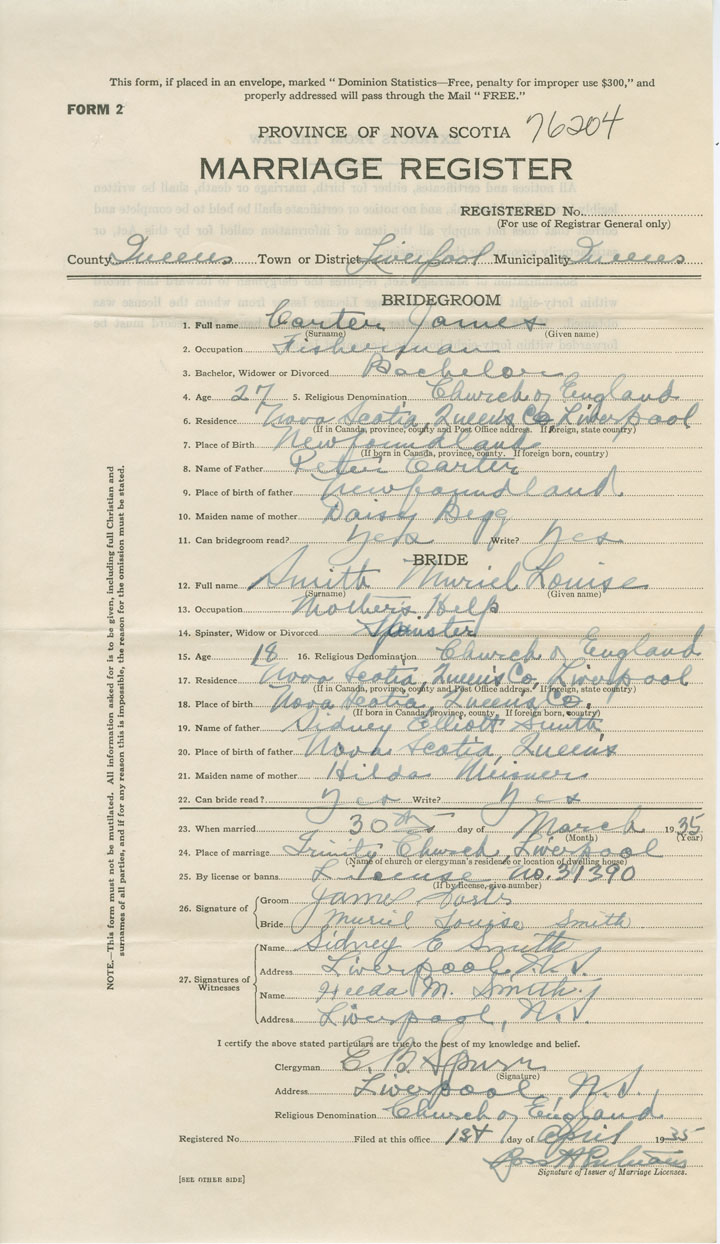 This form, if placed in an envelope, marked “ Dominion Statistics—Free, penalty for improper use $300,” and
properly addressed will pass through the Mail “ FREE.”
FORM 2
PROVINCE OF NOVA SCOTIA 76204
MARRIAGE REGISTER
REGISTERED No.
(For use of Registrar General only)
County Queens Town or District Liverpool Municipality Queens
BRIDEGROOM
1. Full name Carter James
(Surname) (Given name)
2. Occupation Fisherman
3. Bachelor, Widower or Divorced Bachelor
4. Age 27 5. Religious Denomination Church of England
6. Residence Nova Scotia, Queens Co, Liverpool
(If in Canada, province, county and Post Office address. If foreign, state country)
7. Place of Birth Newfoundland
(If born in Canada, province, county. If foreign born, country)
8. Name of Father Peter Carter
9. Place of birth of father Newfoundland
10. Maiden name of mother Daisy Begg
11. Can bridegroom read? Yes Write? Yes
BRIDE
12. Full name Smith Muriel Louise
(Surname) (Given name)
13. Occupation Mother's Help
14. Spinster, Widow or Divorced Spinster
15. Age 18 16. Religious Denomination Church of England
17. Residence Nova Scotia, Queen's Co, Liverpool
(If in Canada, province, county and Post Office address. If foreign, state country)
18. Place of birth Nova Scotia, Queen's Co.
(If born in Canada, province, county. If foreign born, country)
19. Name of father Sidney Elliott Smith
20. Place of birth of father Nova Scotia, Queen's
21. Maiden name of mother Hilda Meisner
22. Can bride read? Yes Write? Yes
23. When married 30th day of March 1935
(Month) (Year)
24. Place of marriage Trinity Church, Liverpool
(Name of church or clergyman's residence or location of dwelling house)
25. By license or banns License no. 31390
(If by license, give number)
26. Signature of
Groom James
Bride Muriel Louise Smith
27. Signatures of Witnesses
Name Sidney E Smith
Address Liverpool, N.S.
Name M. Smith
Address Liverpool, N.S.
I certify the above stated particulars are true to the best of my knowledge and belief.
Clergyman E. B. Spurr
(Signature)
Address Liverpool, N.S.
Religious Denomination Church of England
Registered No. Filed at this office 1st day of April 1935
Signature of Issuer of Marriage Licenses.
[SEE OTHER SIDE]
NOTE.—This form must not be mutilated. All information asked for is to be given, including full Christian and
surnames of all parties, and if for any reason this is impossible, the reason for the omission must be stated.